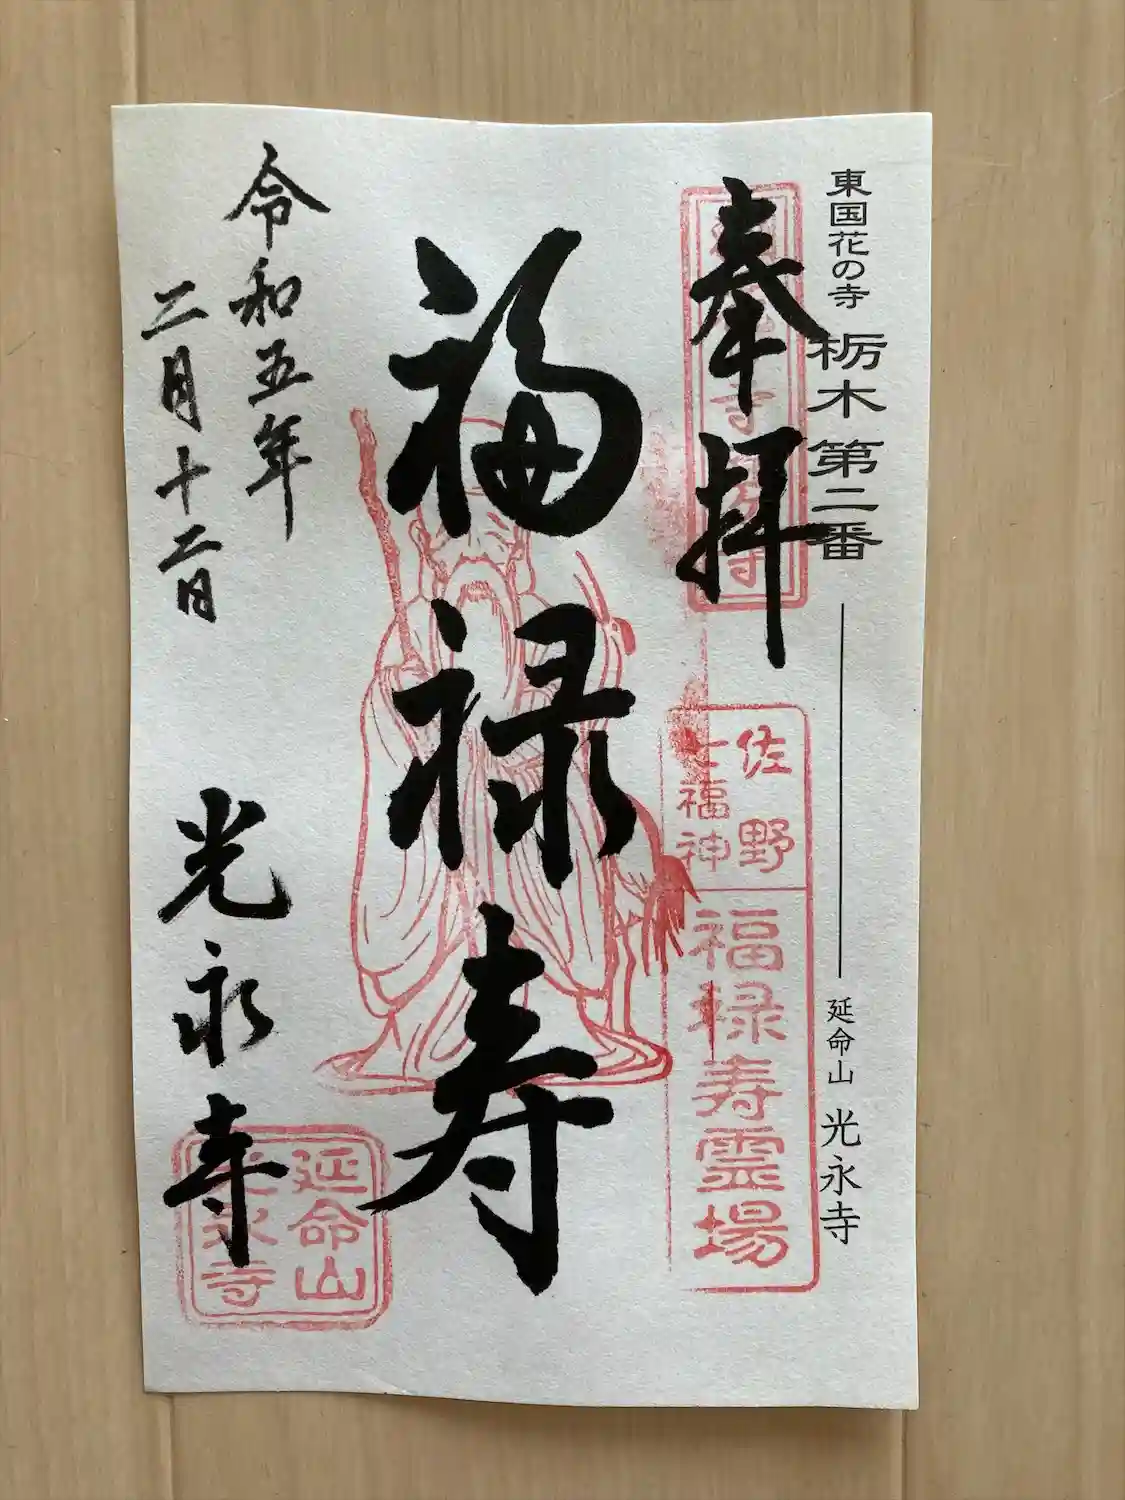 東国花の寺 栃木 第二番 延命山 光永寺
奉拝
佐野
七福神
福禄寿霊場
福禄寿
令和五年
二月十二日
光永寺
延命山
光永寺